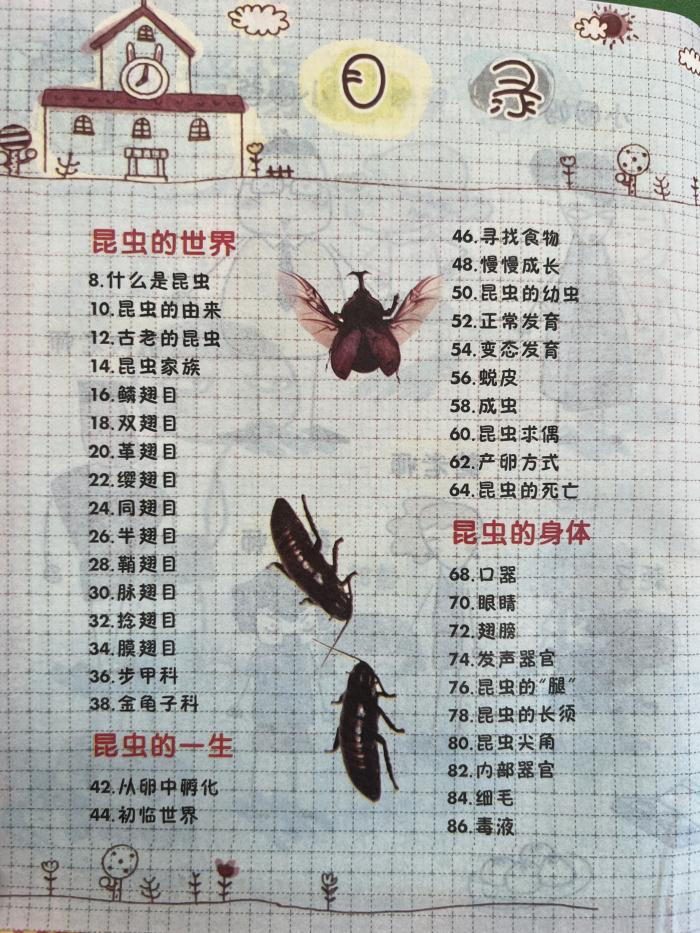 目录
昆虫的世界
8.什么是昆虫
10.昆虫的由来
12.古老的昆虫
14.昆虫家族
16.鳞翅目
18.双翅目
20.革翅目
22.缨翅目
24.同翅目
26.半翅目
28.鞘翅目
30.脉翅目
32.捻翅目
34.膜翅目
36.步甲科
38.金龟子科
昆虫的一生
42.从卵中孵化
44.初临世界
46.寻找食物
48.慢慢成长
50.昆虫的幼虫
52.正常发育
54.变态发育
56.蜕皮
58.成虫
60.昆虫求偶
62.产卵方式
64.昆虫的死亡
昆虫的身体
68.口器
70.眼睛
72.翅膀
74.发声器官
76.昆虫的“腿”
78.昆虫的长须
80.昆虫尖角
82.内部器官
84.细毛
86.毒液